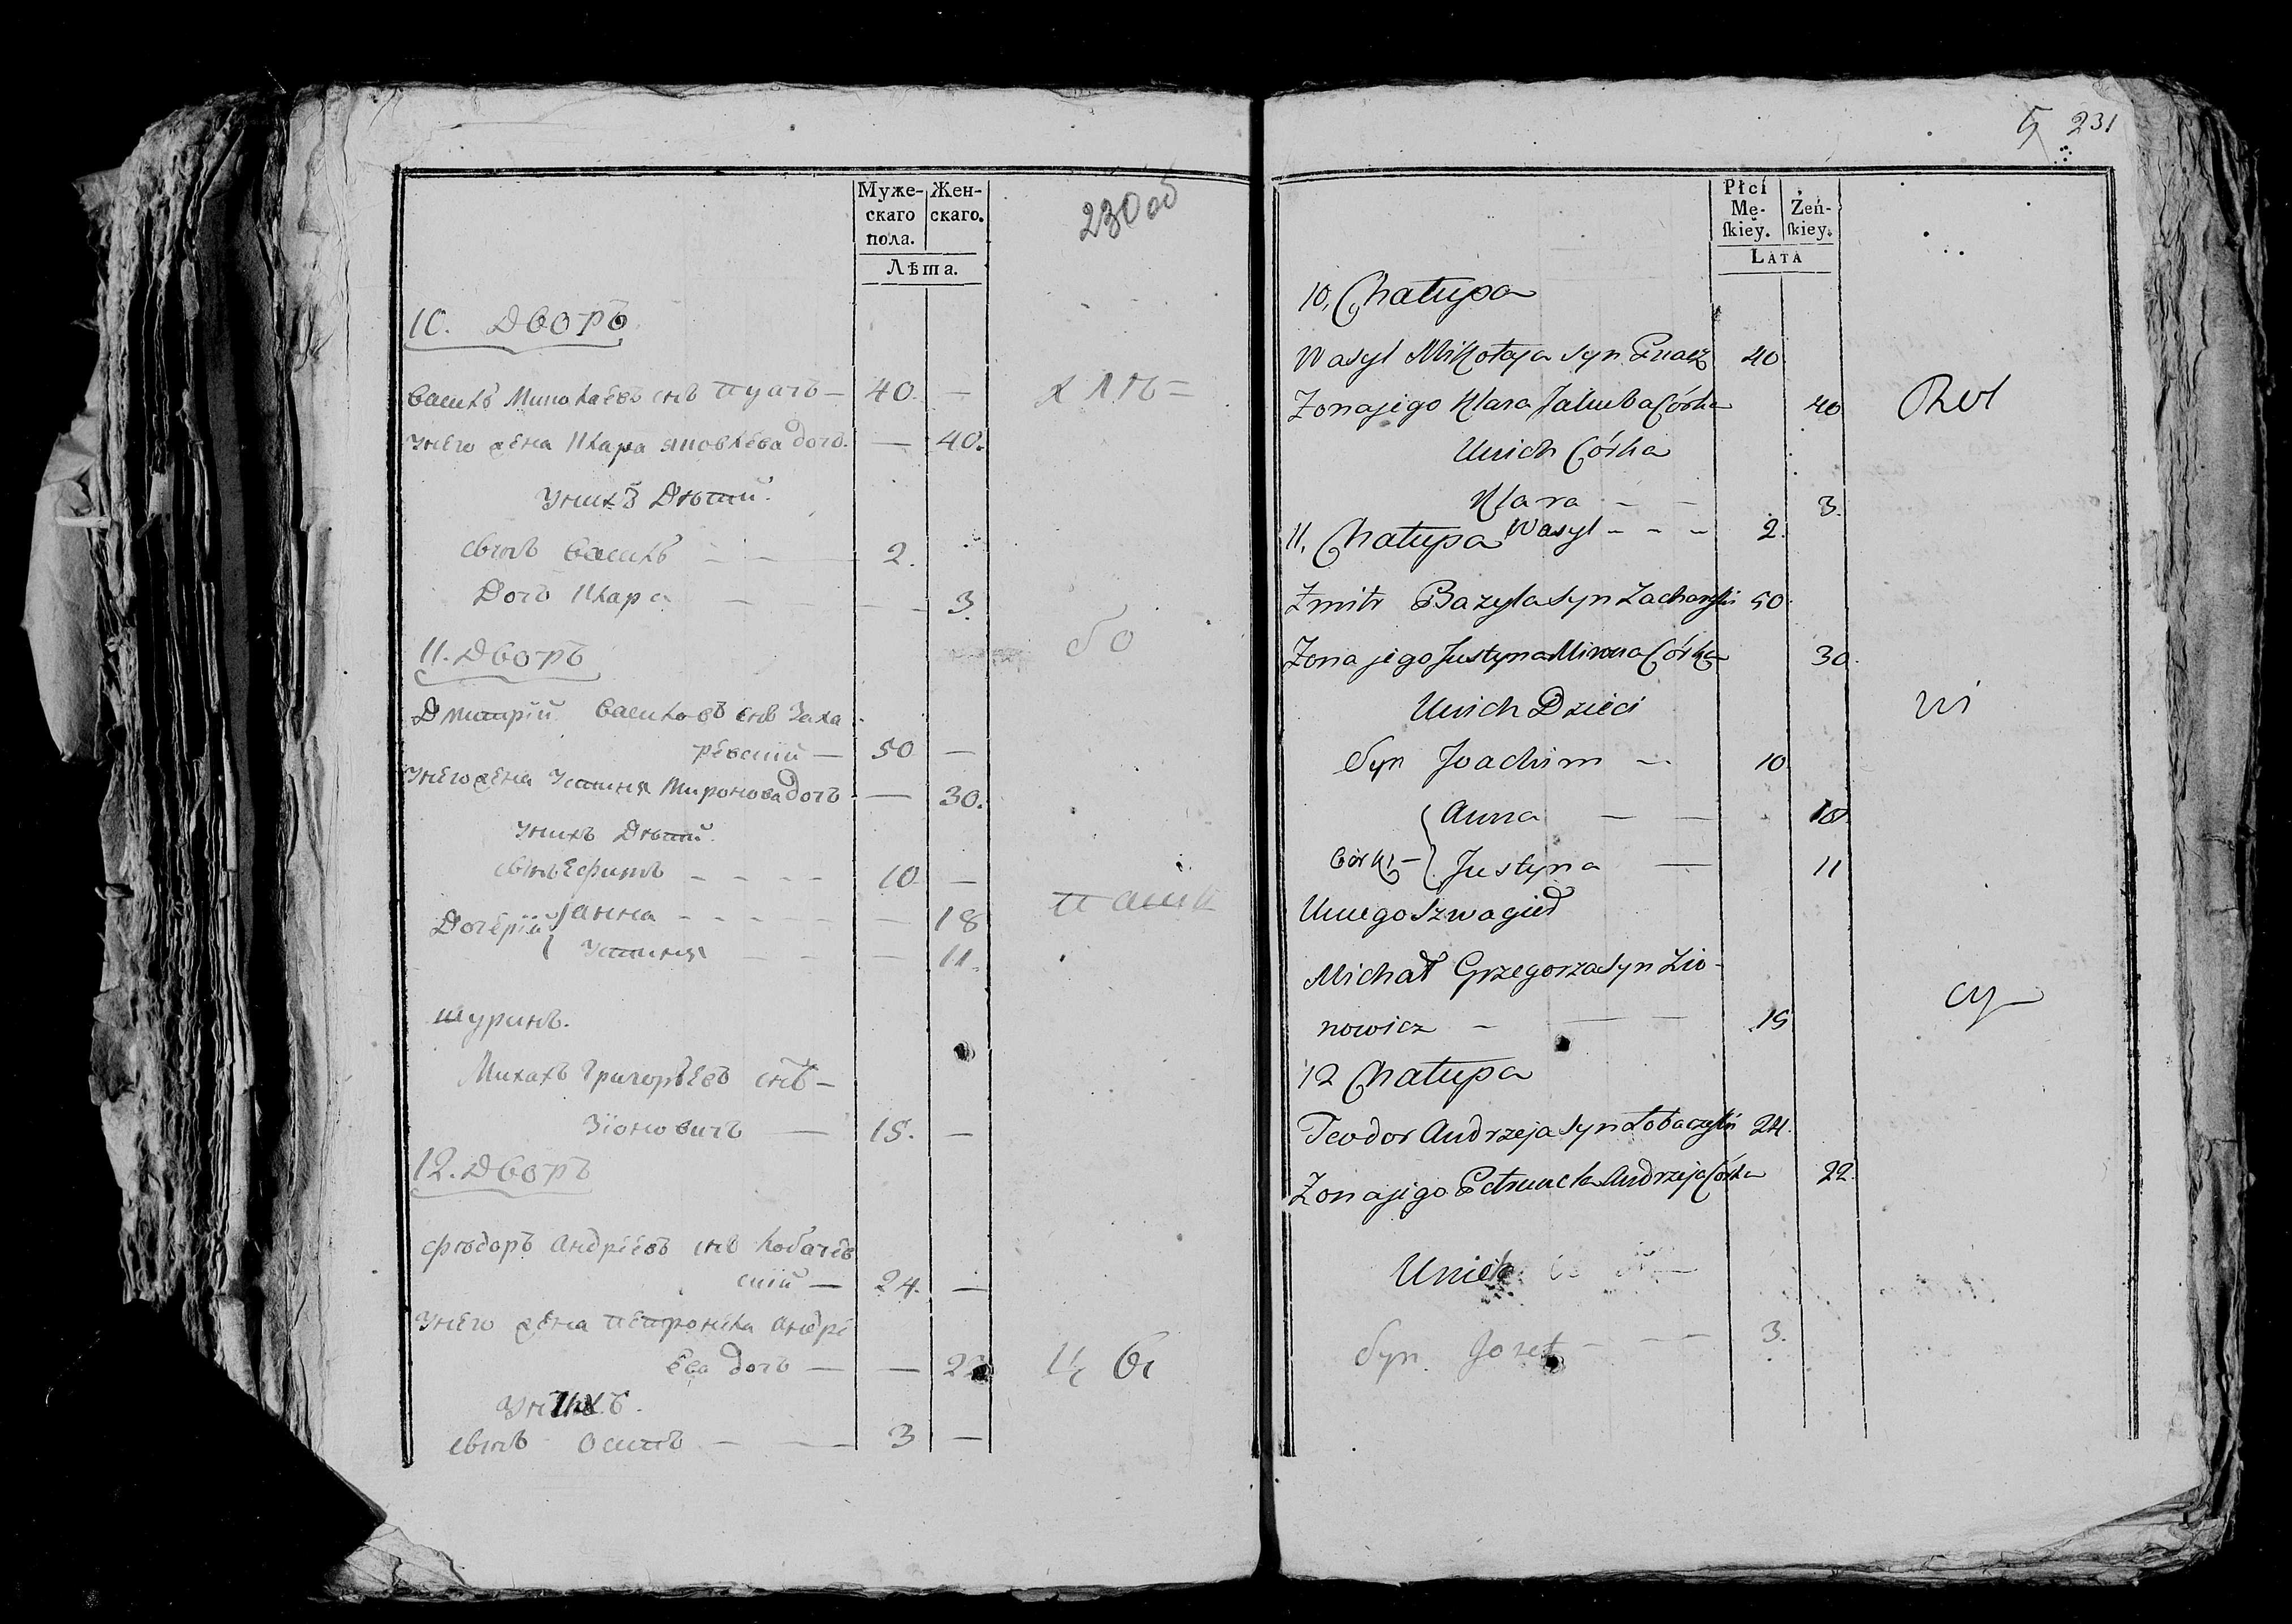 Муже-
скаго
пола.
Жен-
скаго.
Лѣта.
230 об
10. Дворъ
Василь Миколаевъ снъ Пуачъ — 40. —
хлѣ=
У него жена Клара Яковлева дочь. — 40.
У нихъ Дѣтий.
Сынъ Василь — — 2.
Дочь Клара — 3.
11. Дворъ
бо
Дмитрий Васильовъ снъ Заха
ревский — 50 —
У него жена Устиня Миронова дочь — 30.
У нихъ Дѣтий.
Сынъ Ефимъ — — — — 10 —
Дочерий
Анна — — — — — 18
Устиня — — — 11.
пашк
шуринъ.
Михалъ Григорьевъ снъ —
Зїоновичъ — 15. —
12. Дворъ
Фѣдоръ Андреевъ снъ Лобачев
ский — 24. —
У него жена Петронела Андре
ева дочь — — 22
У нихъ.
Сынъ Осипъ — — — 3 —
231
Płci
Mę-
ſkiey.
Żeń-
ſkiey.
LATA
10, Chałupa
Wasyl Mikołaja syn Puacz 40
Zona jego Klara Jakuba Córka 40
Rol
U nich Córka
Klara — — 3.
11, Chałupa
Wasyl — — — 2.
Zmitr Bazyla syn Zacharewski 50
Zona jego Justyna Mirona Córka 30.
U nich Dzieci
ni
Syn Joachim — 10
Córki —
Anna — — 18
Justyna — 11
U niego Szwagier
Michał Grzegorza syn Zio-
nowicz — — — 15
cy
12 Chałupa
Teodor Andrzeja syn Łobaczewski 24.
Zona jego Petrunela Andrzeja Córka 22.
U nich
Syn Jozef — — — 3.